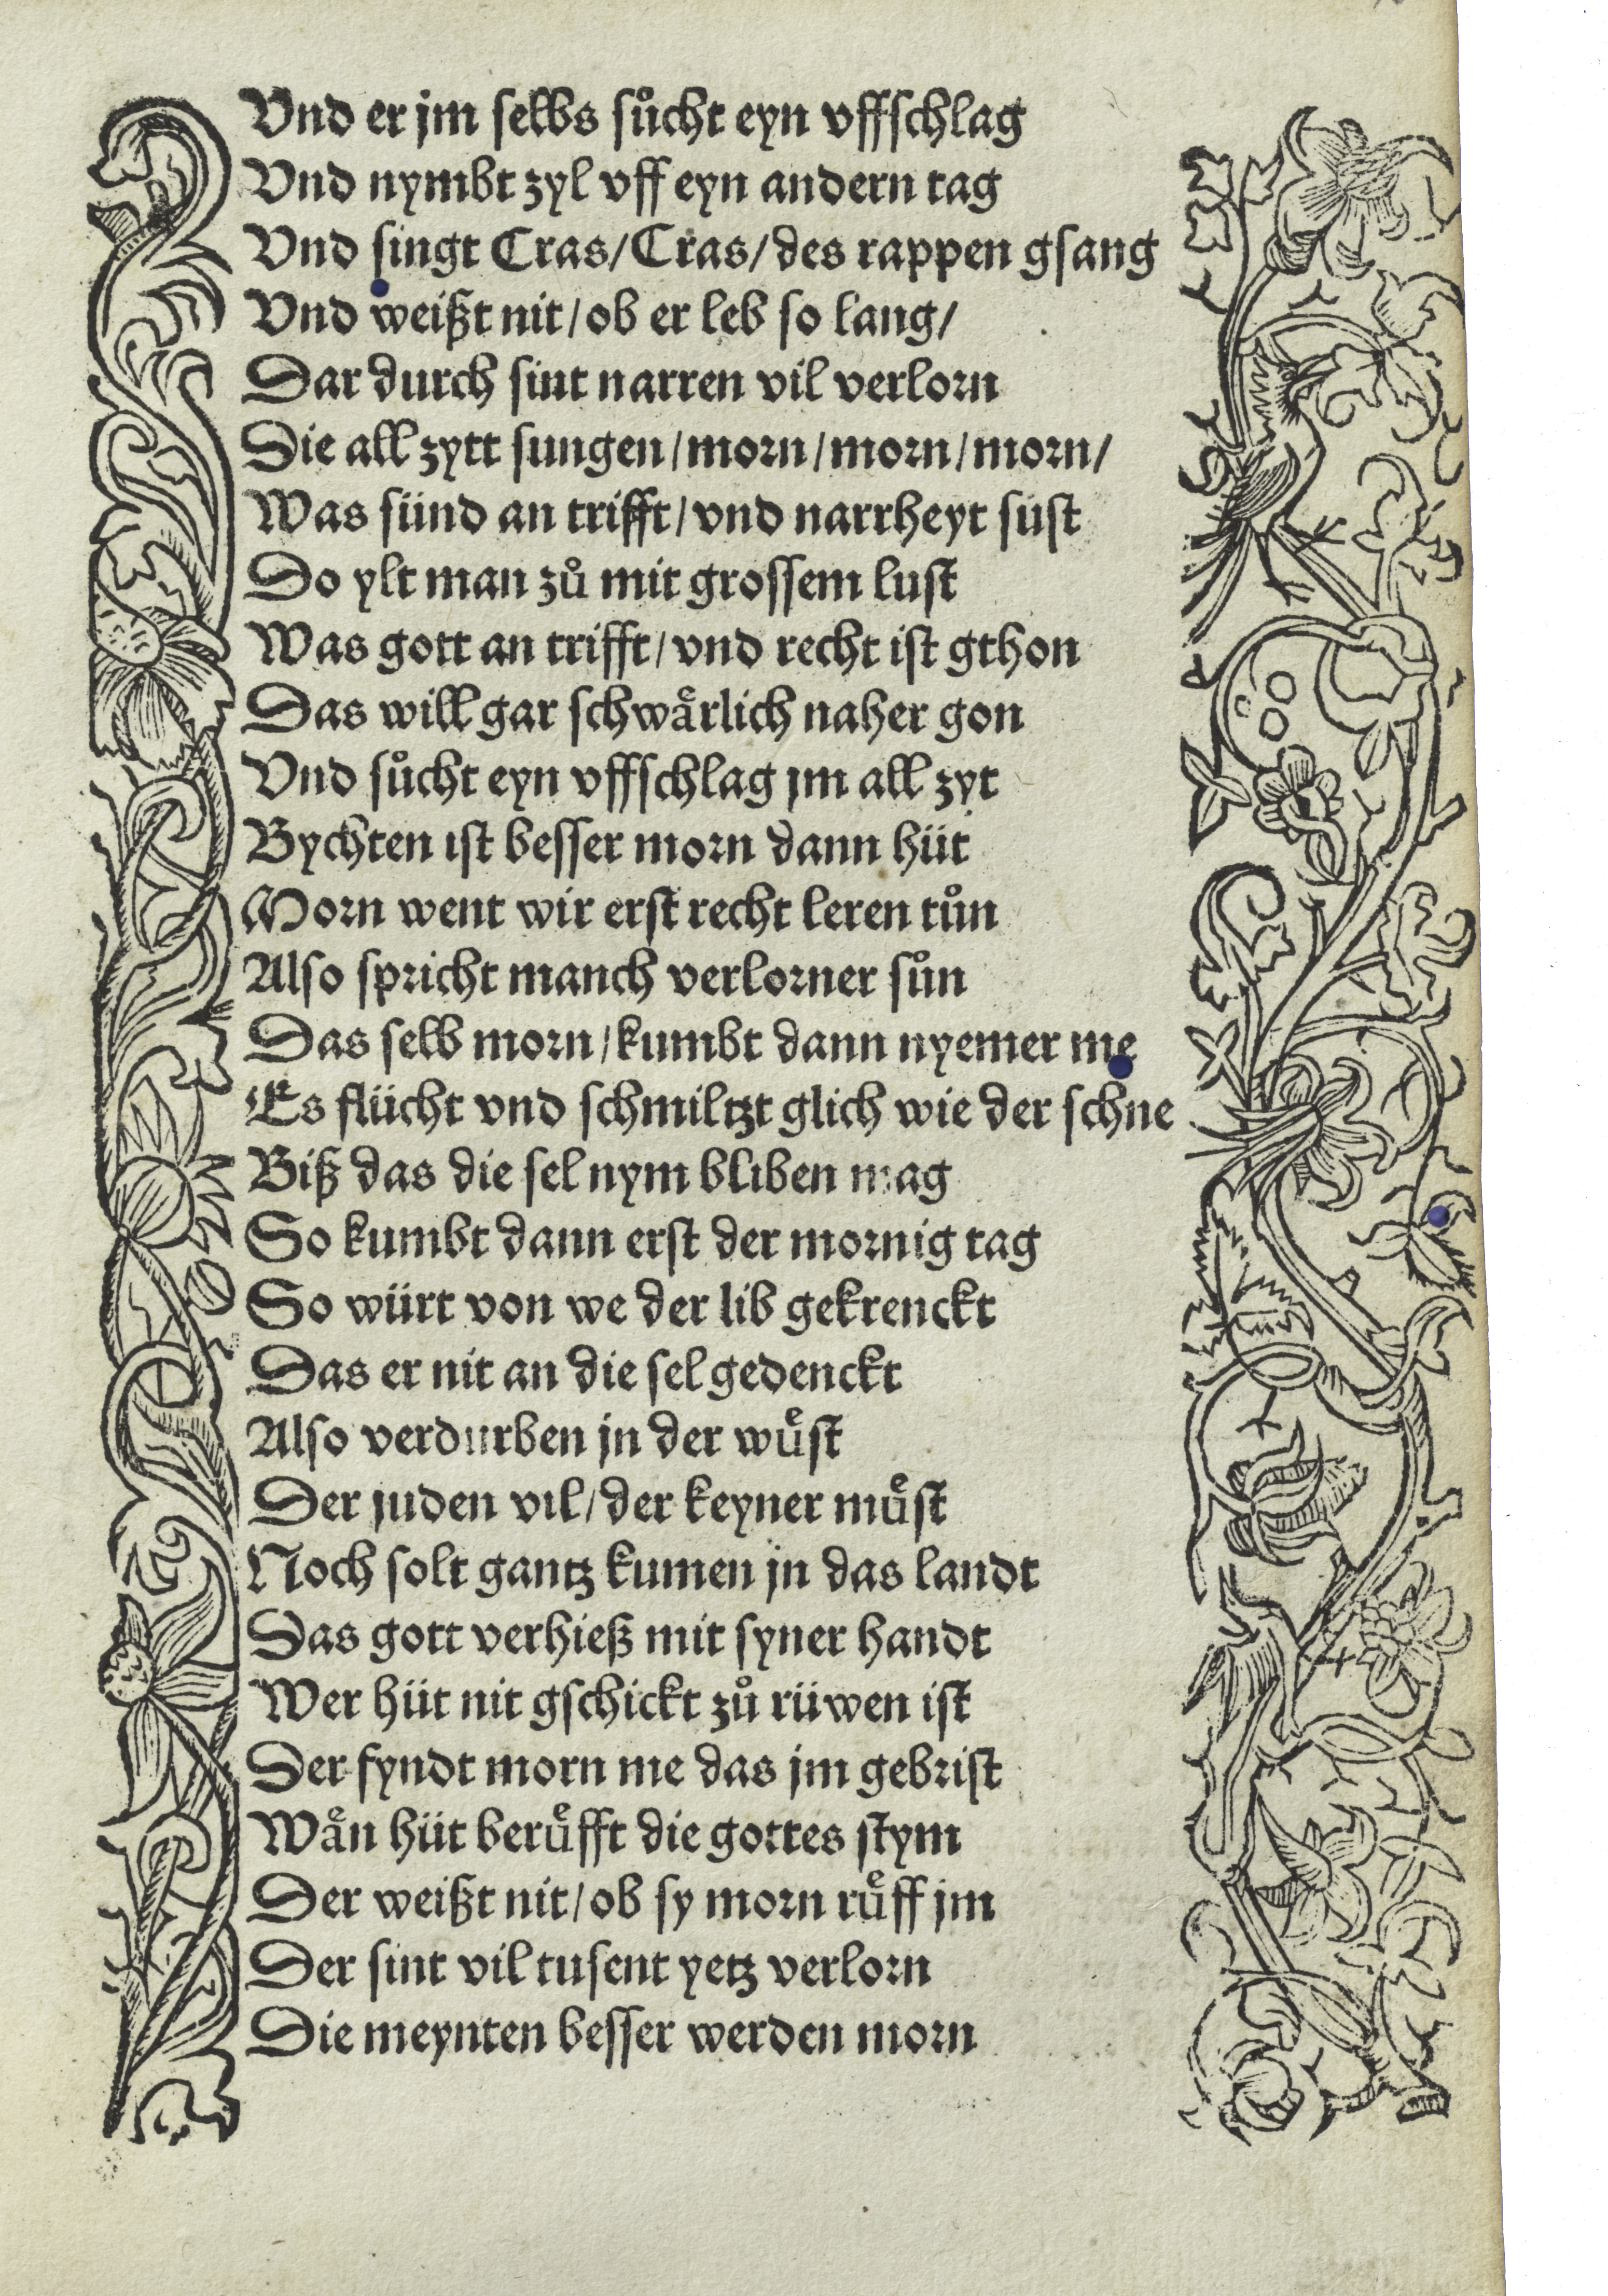 Vnd er jm selbs sůcht eyn vffschlag
Vnd nymbt zyl vff eyn andern tag
Vnd singt Cras/Cras/des rappen gsang
Vnd weißt nit/ob er leb so lang/
Dar durch sint narren vil verlorn
Die all zytt sungen/morn/morn/morn/
Was sünd an trifft/vnd narrheyt sust
Do ylt man zů mit grossem lust
Was gott an trifft/vnd recht ist gthon
Das will gar schwaͤrlich naher gon
Vnd sůcht eyn vffschlag jm all zyt
Bychten ist besser morn dann hüt
Morn went wir erst recht leren tůn
Also spricht manch verlorner sůn
Das selb morn/kumbt dann nyemer me
Es flücht vnd schmiltzt glich wie der schne
Biß das die sel nym bliben mag
So kumbt dann erst der mornig tag
So würt von we der lib gekrenckt
Das er nit an die sel gedenckt
Also verdurben jn der wuͤst
Der juden vil/der keyner muͤst
Noch solt gantz kumen jn das landt
Das gott verhieß mit syner handt
Wer hüt nit gschickt zů rüwen ist
Der fyndt morn me das jm gebrist
Waͤn hüt beruͤfft die gottes stym
Der weißt nit/ob sy morn ruͤff jm
Der sint vil tusent yetz verlorn
Die meynten besser werden morn